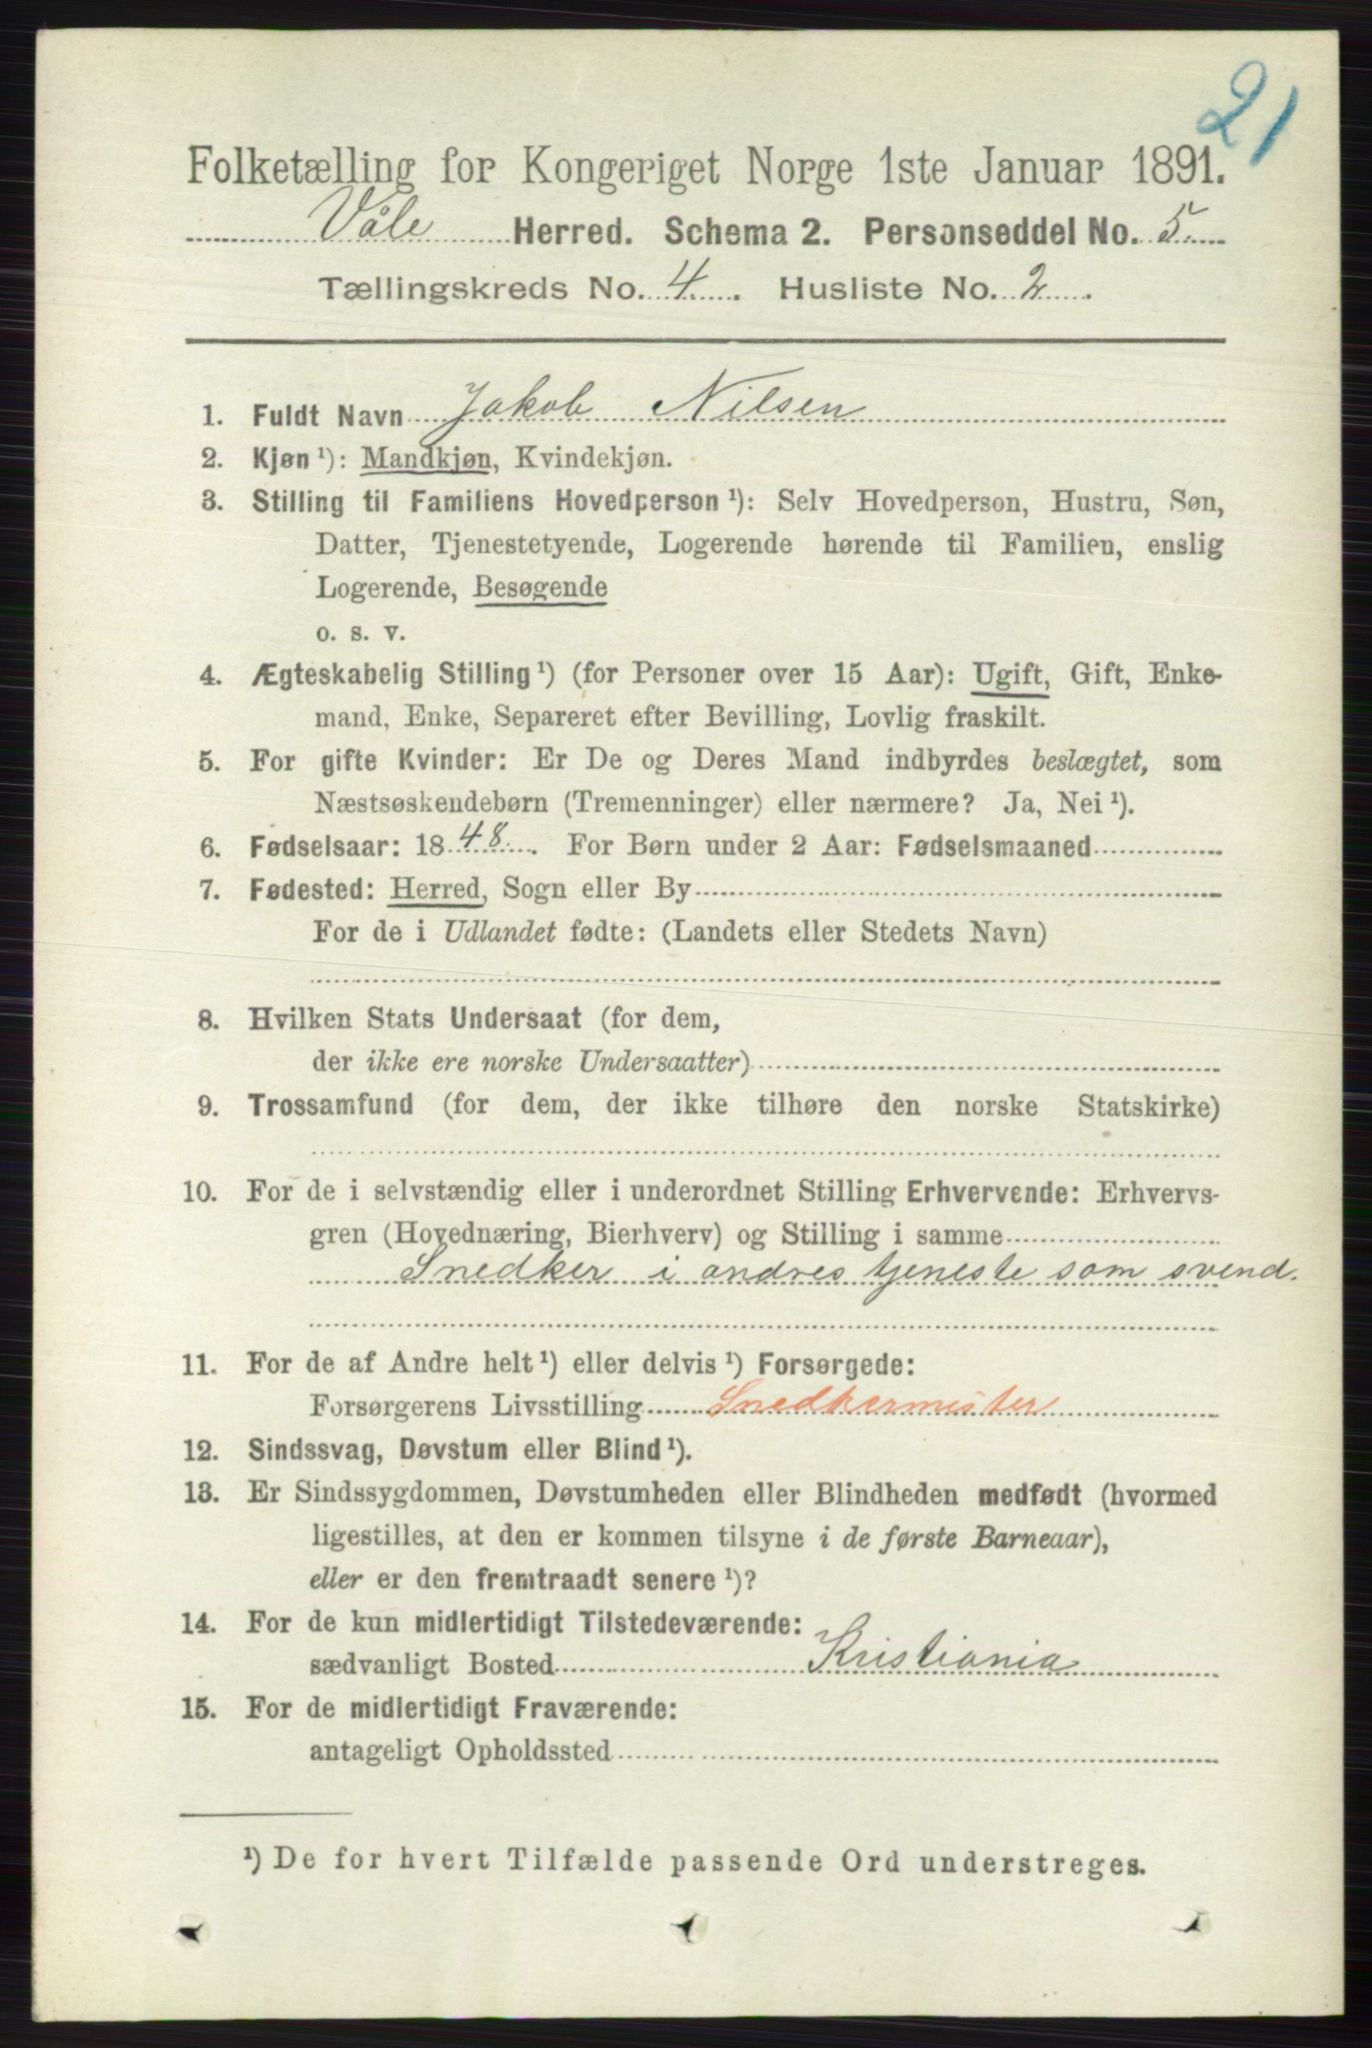 21
Folketælling for Kongeriget Norge 1ste Januar 1891.
Våle Herred. Schema 2. Personseddel No. 5.
Tællingskreds No. 4. Husliste No. 2.
1. Fuldt Navn Jakob Nilsen
2. Kjøn ¹): Mandkjøn, Kvindekjøn.
3. Stilling til Familiens Hovedperson ¹): Selv Hovedperson, Hustru, Søn,
Datter, Tjenestetyende, Logerende hørende til Familien, enslig
Logerende, Besøgende
o. s. v.
4. Ægteskabelig Stilling ¹) (for Personer over 15 Aar): Ugift, Gift, Enke-
mand, Enke, Separeret efter Bevilling, Lovlig fraskilt.
5. For gifte Kvinder: Er De og Deres Mand indbyrdes beslægtet, som
Næstsøskendebørn (Tremenninger) eller nærmere? Ja, Nei ¹).
6. Fødselsaar: 1848. For Børn under 2 Aar: Fødselsmaaned
7. Fødested: Herred, Sogn eller By
For de i Udlandet fødte: (Landets eller Stedets Navn)
8. Hvilken Stats Undersaat (for dem,
der ikke ere norske Undersaatter)
9. Trossamfund (for dem, der ikke tilhøre den norske Statskirke)
10. For de i selvstændig eller i underordnet Stilling Erhvervende: Erhvervs-
gren (Hovednæring, Bierhverv) og Stilling i samme
Snedker i andres tjeneste som svend.
11. For de af Andre helt ¹) eller delvis ¹) Forsørgede:
Forsørgerens Livsstilling Snedkermester
12. Sindssvag, Døvstum eller Blind ¹).
13. Er Sindssygdommen, Døvstumheden eller Blindheden medfødt (hvormed
ligestilles, at den er kommen tilsyne i de første Barneaar),
eller er den fremtraadt senere ¹)?
14. For de kun midlertidigt Tilstedeværende:
sædvanligt Bosted Kristiania
15. For de midlertidigt Fraværende:
antageligt Opholdssted
¹) De for hvert Tilfælde passende Ord understreges.